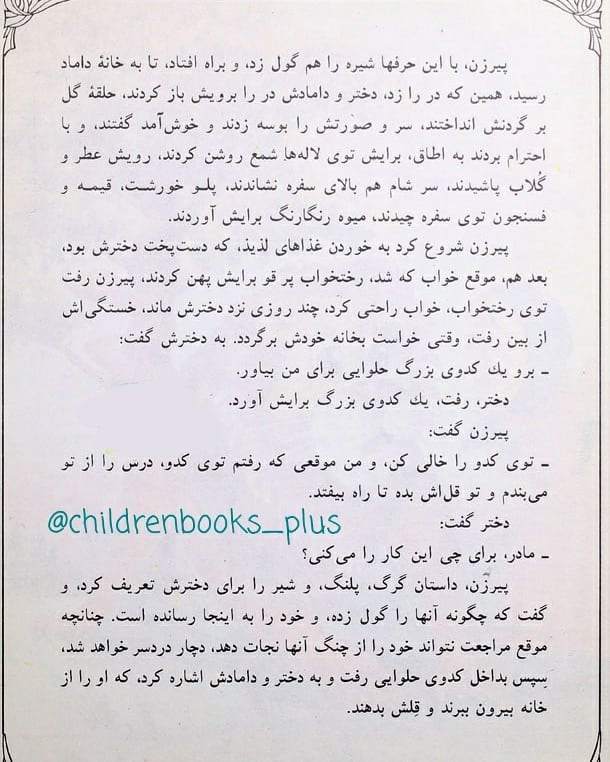 پیرزن، با این حرفها شیره را هم گول زد، و براه افتاد، تا به خانهٔ داماد
رسید، همین که در را زد، دختر و دامادش در را برویش باز کردند، حلقهٔ گل
بر گردنش انداختند، سر و صورتش را بوسه زدند و خوش‌آمد گفتند، و با
احترام بردند به اطاق، برایش توی لاله‌ها شمع روشن کردند، رویش عطر و
گُلاب پاشیدند، سر شام هم بالای سفره نشاندند، پلـو خورشـت، قیمـه و
فسنجون توی سفره چیدند، میوه رنگارنگ برایش آوردند.
پیرزن شروع کرد به خوردن غذاهای لذیذ، که دست‌پخت دخترش بود،
بعد هم، موقع خواب که شد، رختخواب پر قو برایش پهن کردند، پیرزن رفت
توی رختخواب، خواب راحتی کرد، چند روزی نزد دخترش ماند، خستگی‌اش
از بین رفت، وقتی خواست بخانه خودش برگردد. به دخترش گفت:
ـ برو یك کدوی بزرگ حلوایی برای من بیاور.
دختر، رفت، یك کدوی بزرگ برایش آورد.
پیرزن گفت:
ـ توی کدو را خالی کن، و من موقعی که رفتم توی کدو، درش را از تو
می‌بندم و تو قل‌اش بده تا راه بیفتد.
دختر گفت:
@childrenbooks_plus
ـ مادر، برای چی این کار را می‌کنی؟
پیرزن، داستان گرگ، پلنگ، و شیر را برای دخترش تعریف کرد، و
گفت که چگونه آنها را گول زده، و خود را به اینجا رسانده است. چنانچه
موقع مراجعت نتواند خود را از چنگ آنها نجات دهد، دچار دردسر خواهد شد،
سپس بداخل کدوی حلوایی رفت و به دختر و دامادش اشاره کرد، که او را از
خانه بیرون ببرند و قِلش بدهند.